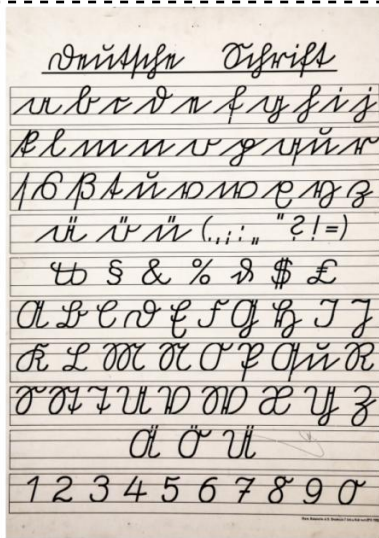 Deutsche Schrift
a b c d e f g h i j
k l m n o p q u r
ſ s ß t u v w x y z
ä ö ü ( . , ; : „ " ? ! = )
₶ § & % ₰ $ £
A B C D E F G H I J
K L M N O P Qu R
S St T U V W X Y Z
Ä Ö Ü
1 2 3 4 5 6 7 8 9 0